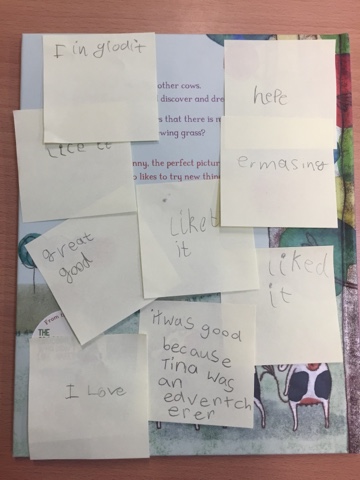 I in glodit
other cows.
discover and dre
s that there is m
wing grass?
nny, the perfect pictur
o likes to try new thing
hepe
lice it
ermasing
great
good
liket
it
liked
it
From
THE
I Love
itwas good
because
Tina was
an
edventch
erer